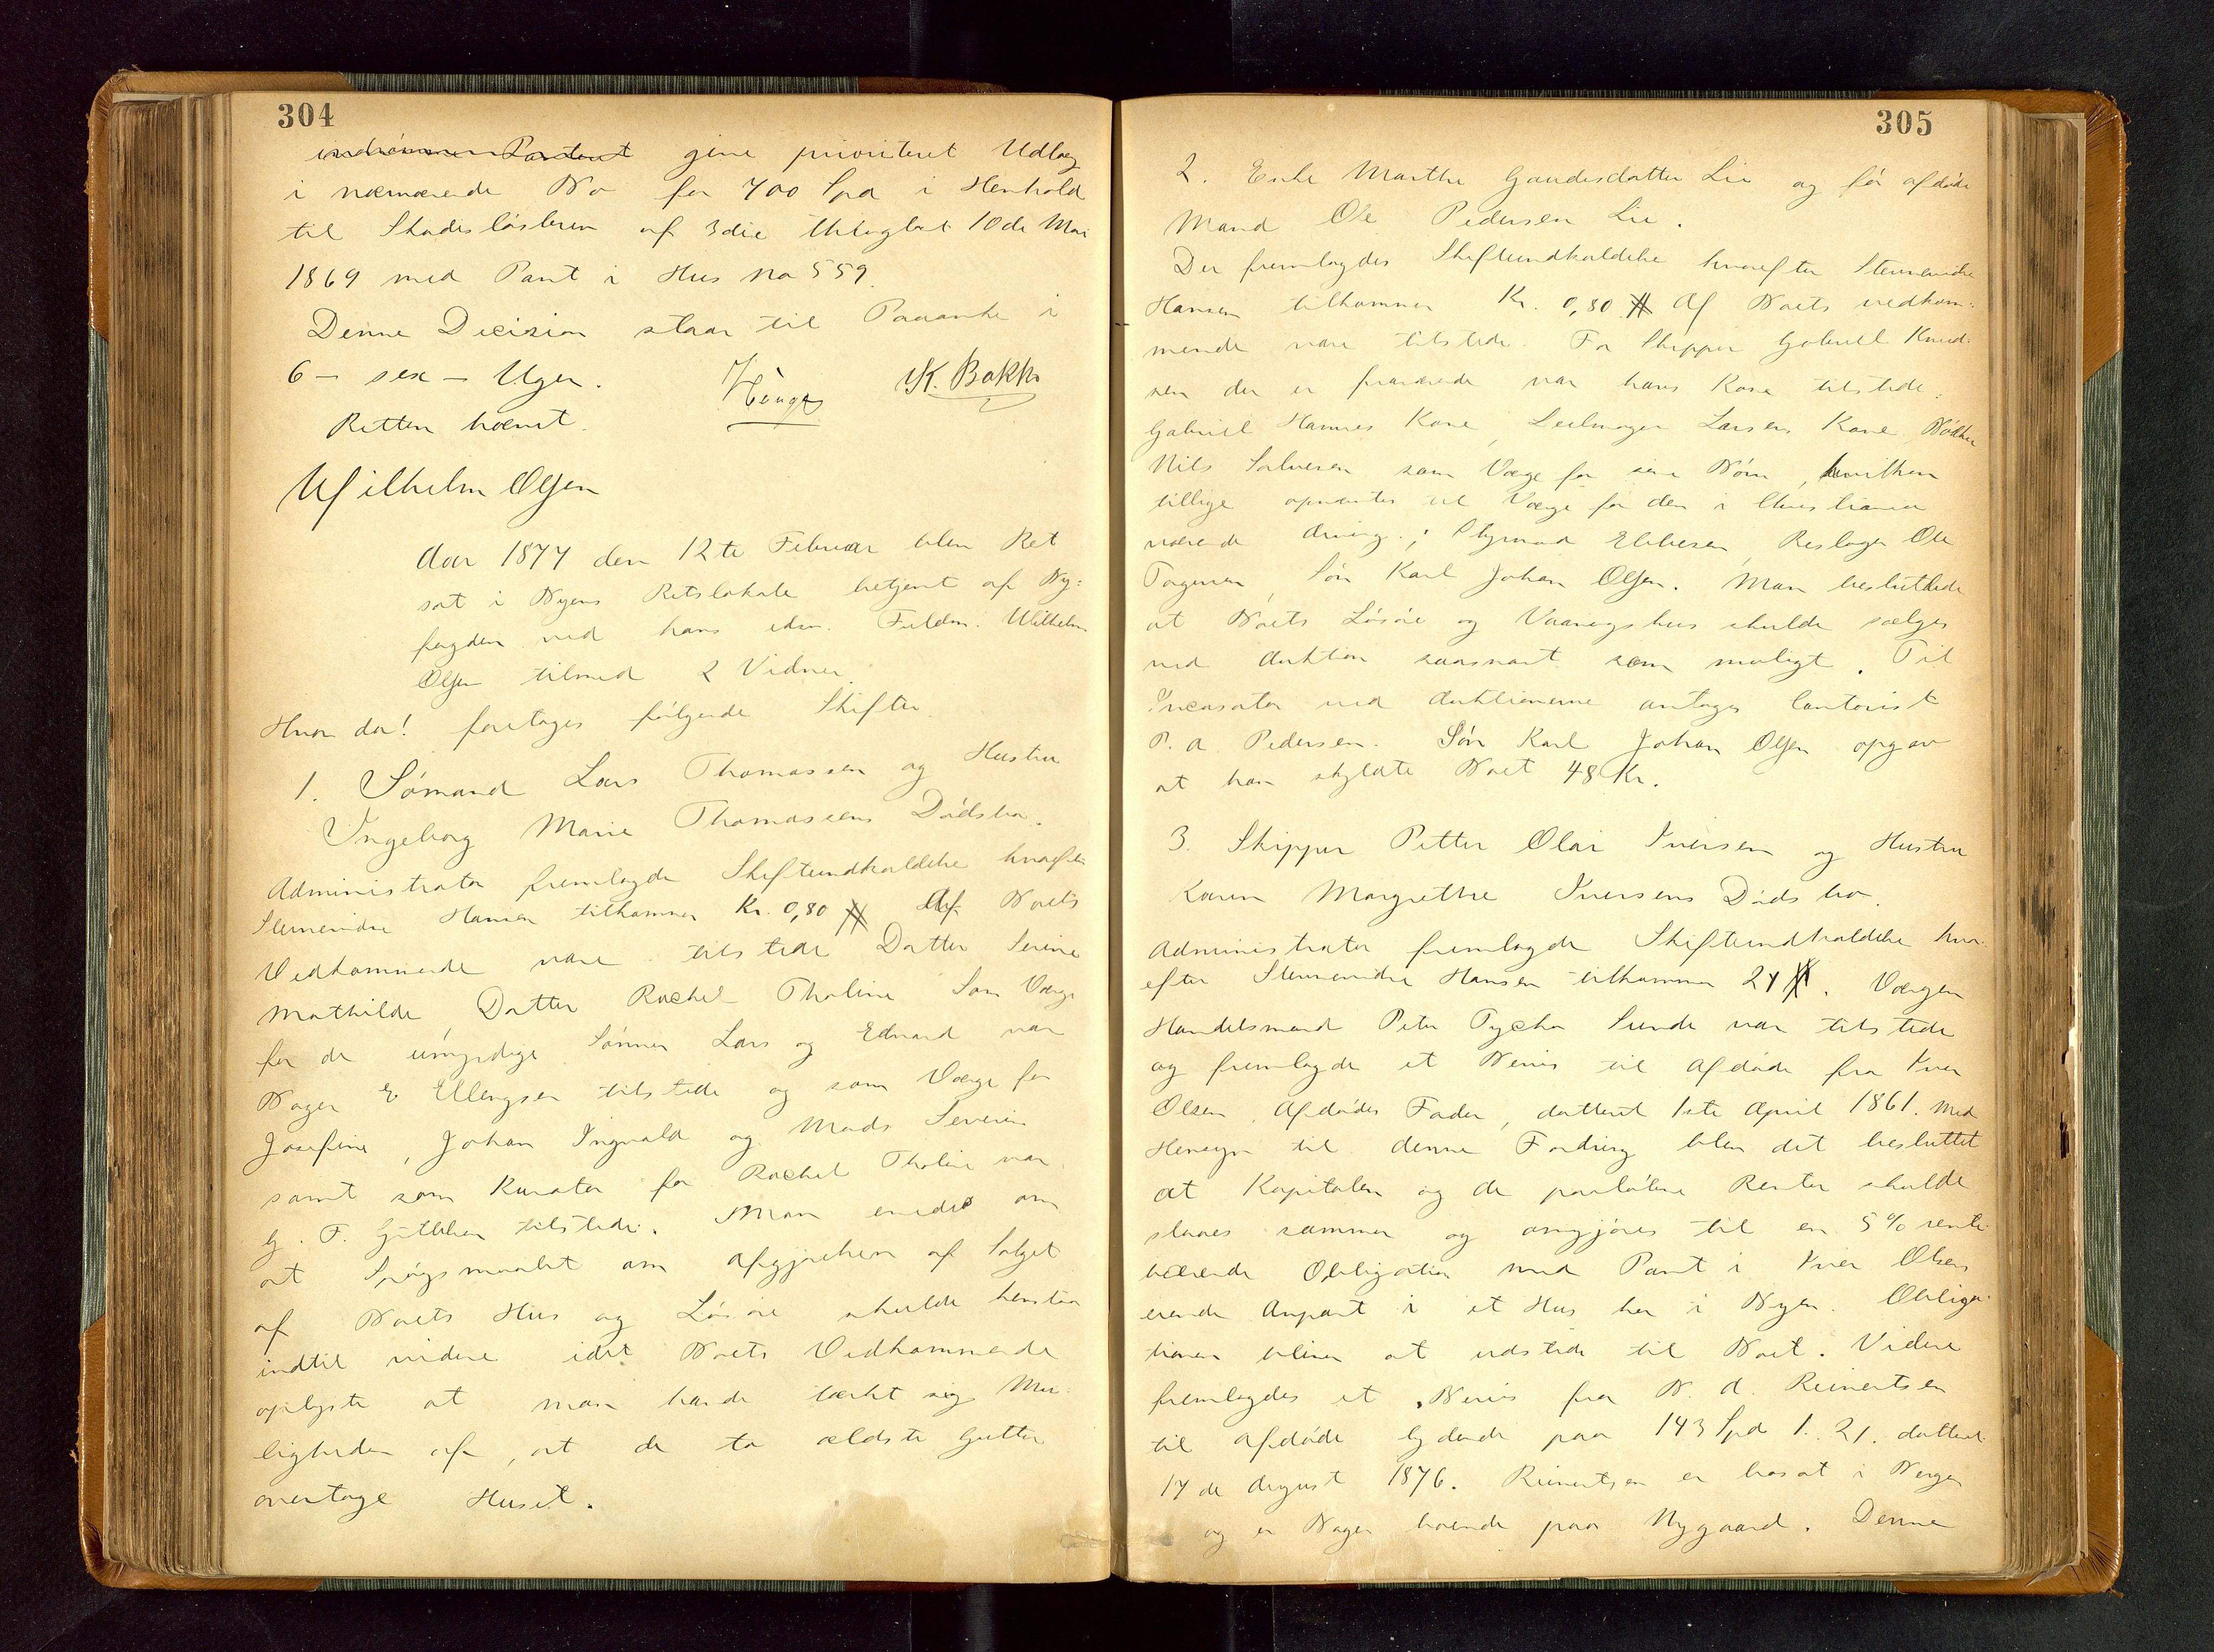 304
indrømmer Pantent give prioriteret Udlæg
i nærværende Bo for 700 Spd i Henhold
til Skadesløsbrev af 3die thlaglæst 10de Mai
1869 med Pant i Hus No 559.
Denne Decision staar til Paaanke i
6 - sex - Uger.
Retten hævet.
K. Bakke
Wilhelm Olsen
Aar 1877 den 12te Februar blev Ret
sat i Byens Retslokale betjent af By=
fogden ved hans edsv. Fuldm. Wilhelm
Olsen tilmed 2 Vidner.
Hvor da! foretoges følgende Skifter.
1. Sømand Lars Thomassen og Hustru
Ingeborg Marie Thomassens Dødsbo.
Administrator fremlagde Skifteindkaldelse hvorefter
Stevnevidne Hansen tilkommer Kr. 0,80 Af Boets
Vedkommende vare tilstede Datter Serine
Mathilde, Datter Rachel Tholine Som Værge
for de umyndige Sønner Lars og Edvard var
Bager E Ellengsen tilstede og som Værge for
Josefine, Johan Ingvald og Mads Severin
samt som Kurator for Rachel Tholine var
G. F. tilstede. Man enedes om
at Spørgsmaalet om Afgjørelsen af Salget
af Boets Hus og Løsøre skulde henstaa
indtil videre idet Boets Vedkommende
oplyste at man havde tænkt sig Mu=
ligheden af, at de to ældste Gutter
overtage Huset.
305
2. Enke Marthe Gaudesdatter Lie og før afdøde
Mand Ole Pedersen Lie.
Der fremlagdes Skifteindkaldelse hvorefter Stevnevidne
Hansen tilkommer Kr. 0,80 Af Boets vedkom=
mende vare tilstede. For Skipper Gabriel Knud=
sen der er fraværende var hans Kone tilstede,
Gabriel Hannes Kone, Seilmager Larsens Kone, Bødker
Nils Salvesen som Værge for sine Børn, hvilken
tillige opnævntes til Værge for den i Christiania
værende Arving; Styrmand Ebbesen, Reslager Ole
Torgersen, Søn Karl Johan Olsen. Man besluttede
at Boets Løsøre og Vaaningshus skulde sælges
ved Auktion saasnart som muligt. Til
Incasator ved Auktionerne antoges Contorist
P. A. Pedersen. Søn Karl Johan Olsen opgav
at han skyldte Boet 48 Kr.
3. Skipper Petter Olai Iversen og Hustru
Karen Margrethe Iversens Dødsbo.
Administrator fremlagde Skifteindkaldelse hvor=
efter Stevnevidne Hansen tilkommer 24 . Værgen
Handelsmand Peter Tycho Sunde var tilstede
og fremlagde et Bevis til Afdøde fra Iver
Olsen, Afdødes Fader, datteret 1ste April 1861. Med
Hensyn til denne Fordring blev det besluttet
at Kapitalen og de paaløbne Renter skulde
slaaes sammen og omgjøres til en 5% rente=
bærende Obligation med Pant i Iver Olsens
eiende Anpart i et Hus her i Byen. Obliga=
tionen bliver at udstede til Boet. Videre
fremlagdes et Bevis fra B. A. Reinertsen
til Afdøde lydende paa 143 Spd 1. 21. datteret
17de August 1876. Reinertsen er bosat i Bergen
og er Bager boende paa Nygaard. Denne